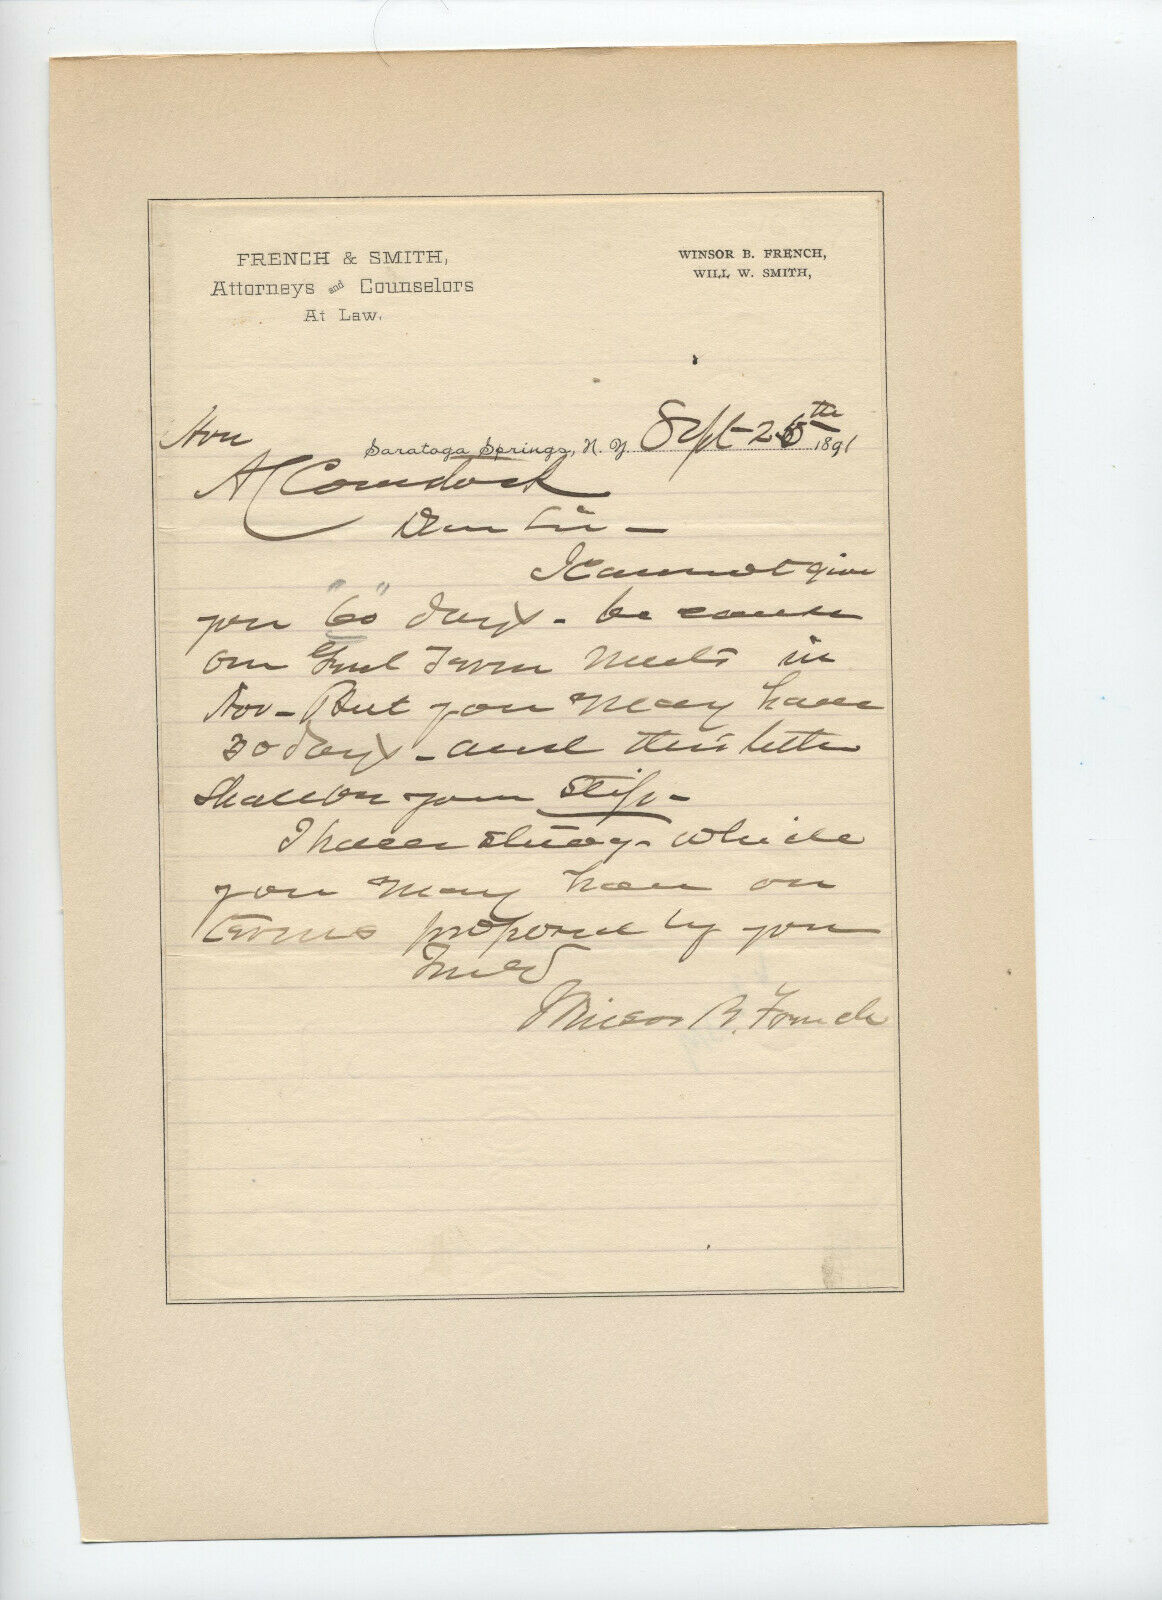 FRENCH & SMITH,
Attorneys and Counselors
At Law.
WINSOR B. FRENCH,
WILL W. SMITH,
Hon
Saratoga Springs, N. Y. Sept 25th 1891
A C Comstock
Dear Sir —
I cannot give
you "60" days - because
our Genl Term meets in
Nov - But you may have
30 days - and this letter
shall be your stip -
I have - which
you may have on
terms proposed by you
Winsor B. French